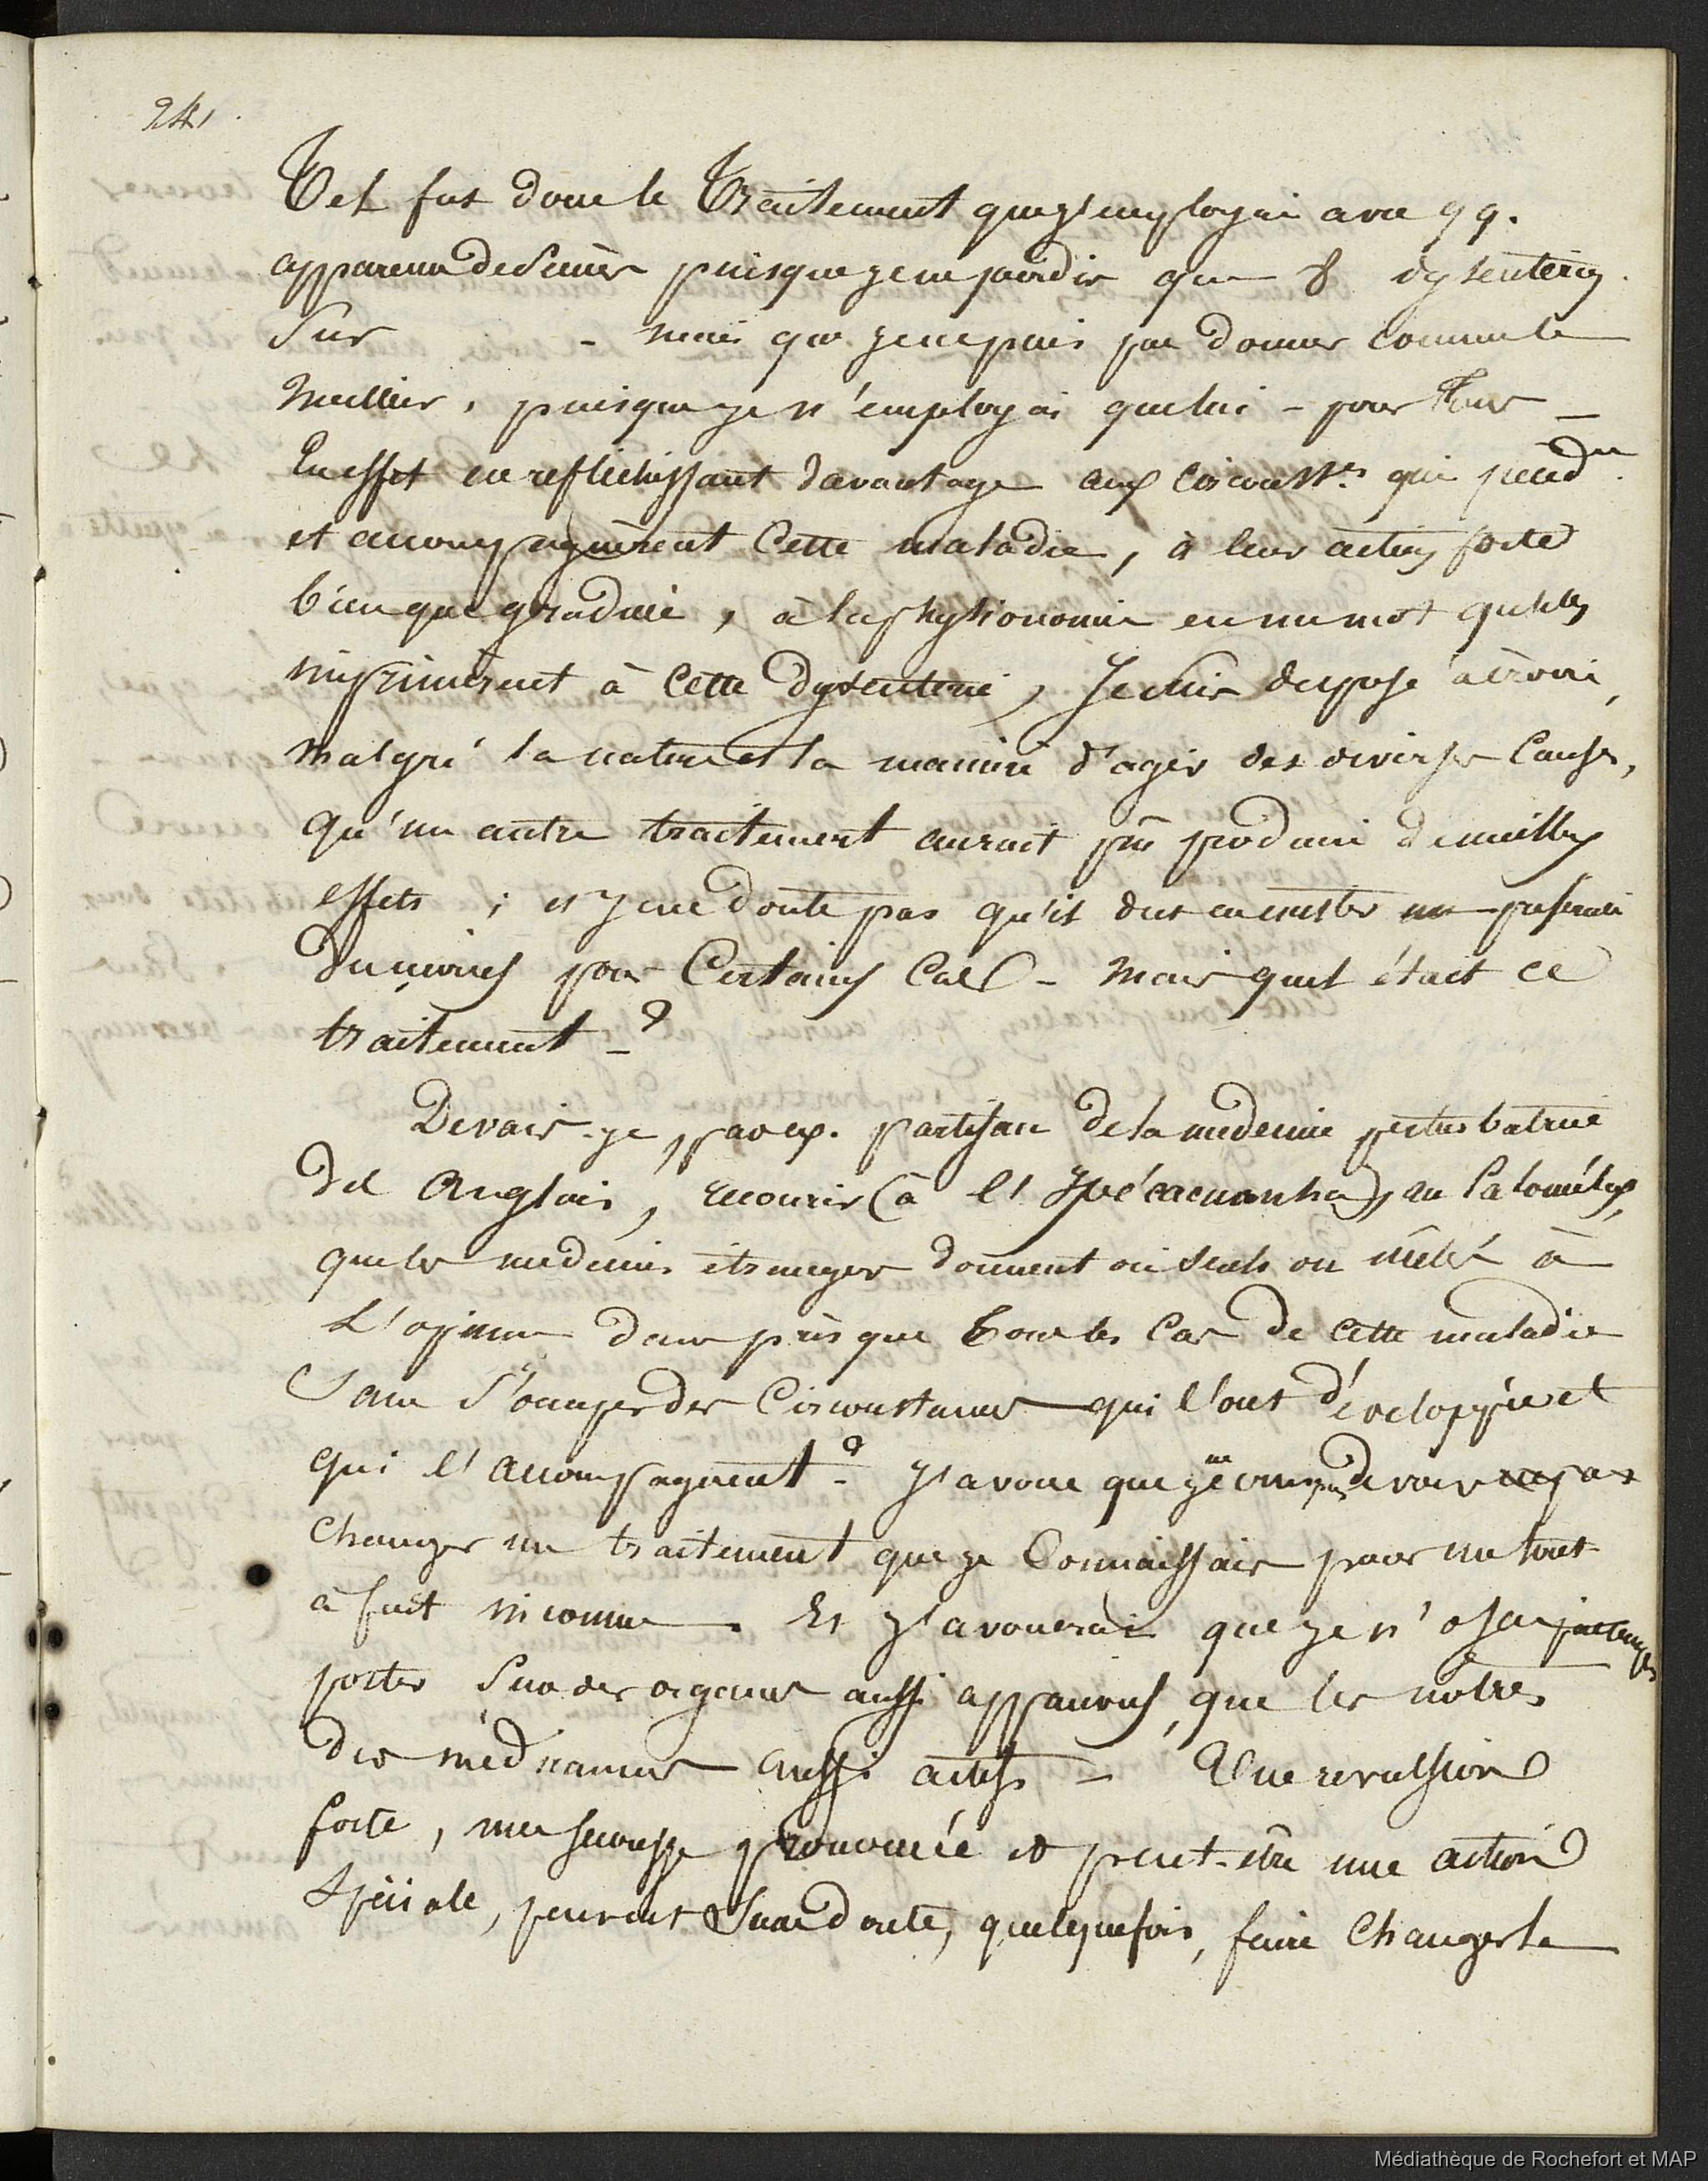 241.
Tel fut donc le Traitement que j'employai avec qq.
apparence de succès puisque je ne perdis que 8 dysenteriq.
Sur - mais que je ne puis pas donner comme le
meilleur, puisque je n'employai que lui - pour Tous -
En effet en reflechissant davantage aux circonst.es qui
et accompagnèrent Cette maladie, à leur action forte
bien que graduée, à la physionomie en un mot qu'elles
imprimèrent à Cette dysenterie, Je suis disposé à croire,
malgré la nature et la manière d'agir des diverses Causes,
qu'un autre traitement aurait pû produire de meilleurs
effets ; et je ne doute pas qu'il dut en exister un préférable
du moins pour Certains Cas - mais quel était ce
traitement - ?
Devais-je, par ex. partisan de la medecine perturbatrice
des Anglais, recourir (à l'Ypécacuanha), au Calomélas,
que les medecins étrangers donnent ou seuls ou mêlés à
L'opium dans presque Tous les Cas de Cette maladie
Sans S'occuper des Circonstances qui l'ont dévelopée et
qui l'accompagnent - ? J'avoue que je ne crus pas devoir
changer un traitement que je Connaissais pour un tout-
à fait inconnu. Et J'avouerai que je n'osai
porter Sur des organes aussi appauvris, que les nôtres
des médicamens aussi actifs - Une revulsion
forte, une secousse prononcée et peut-être une action
Spéciale, peuvent Sans doute, quelquefois, faire Changer le
Médiathèque de Rochefort et MAP